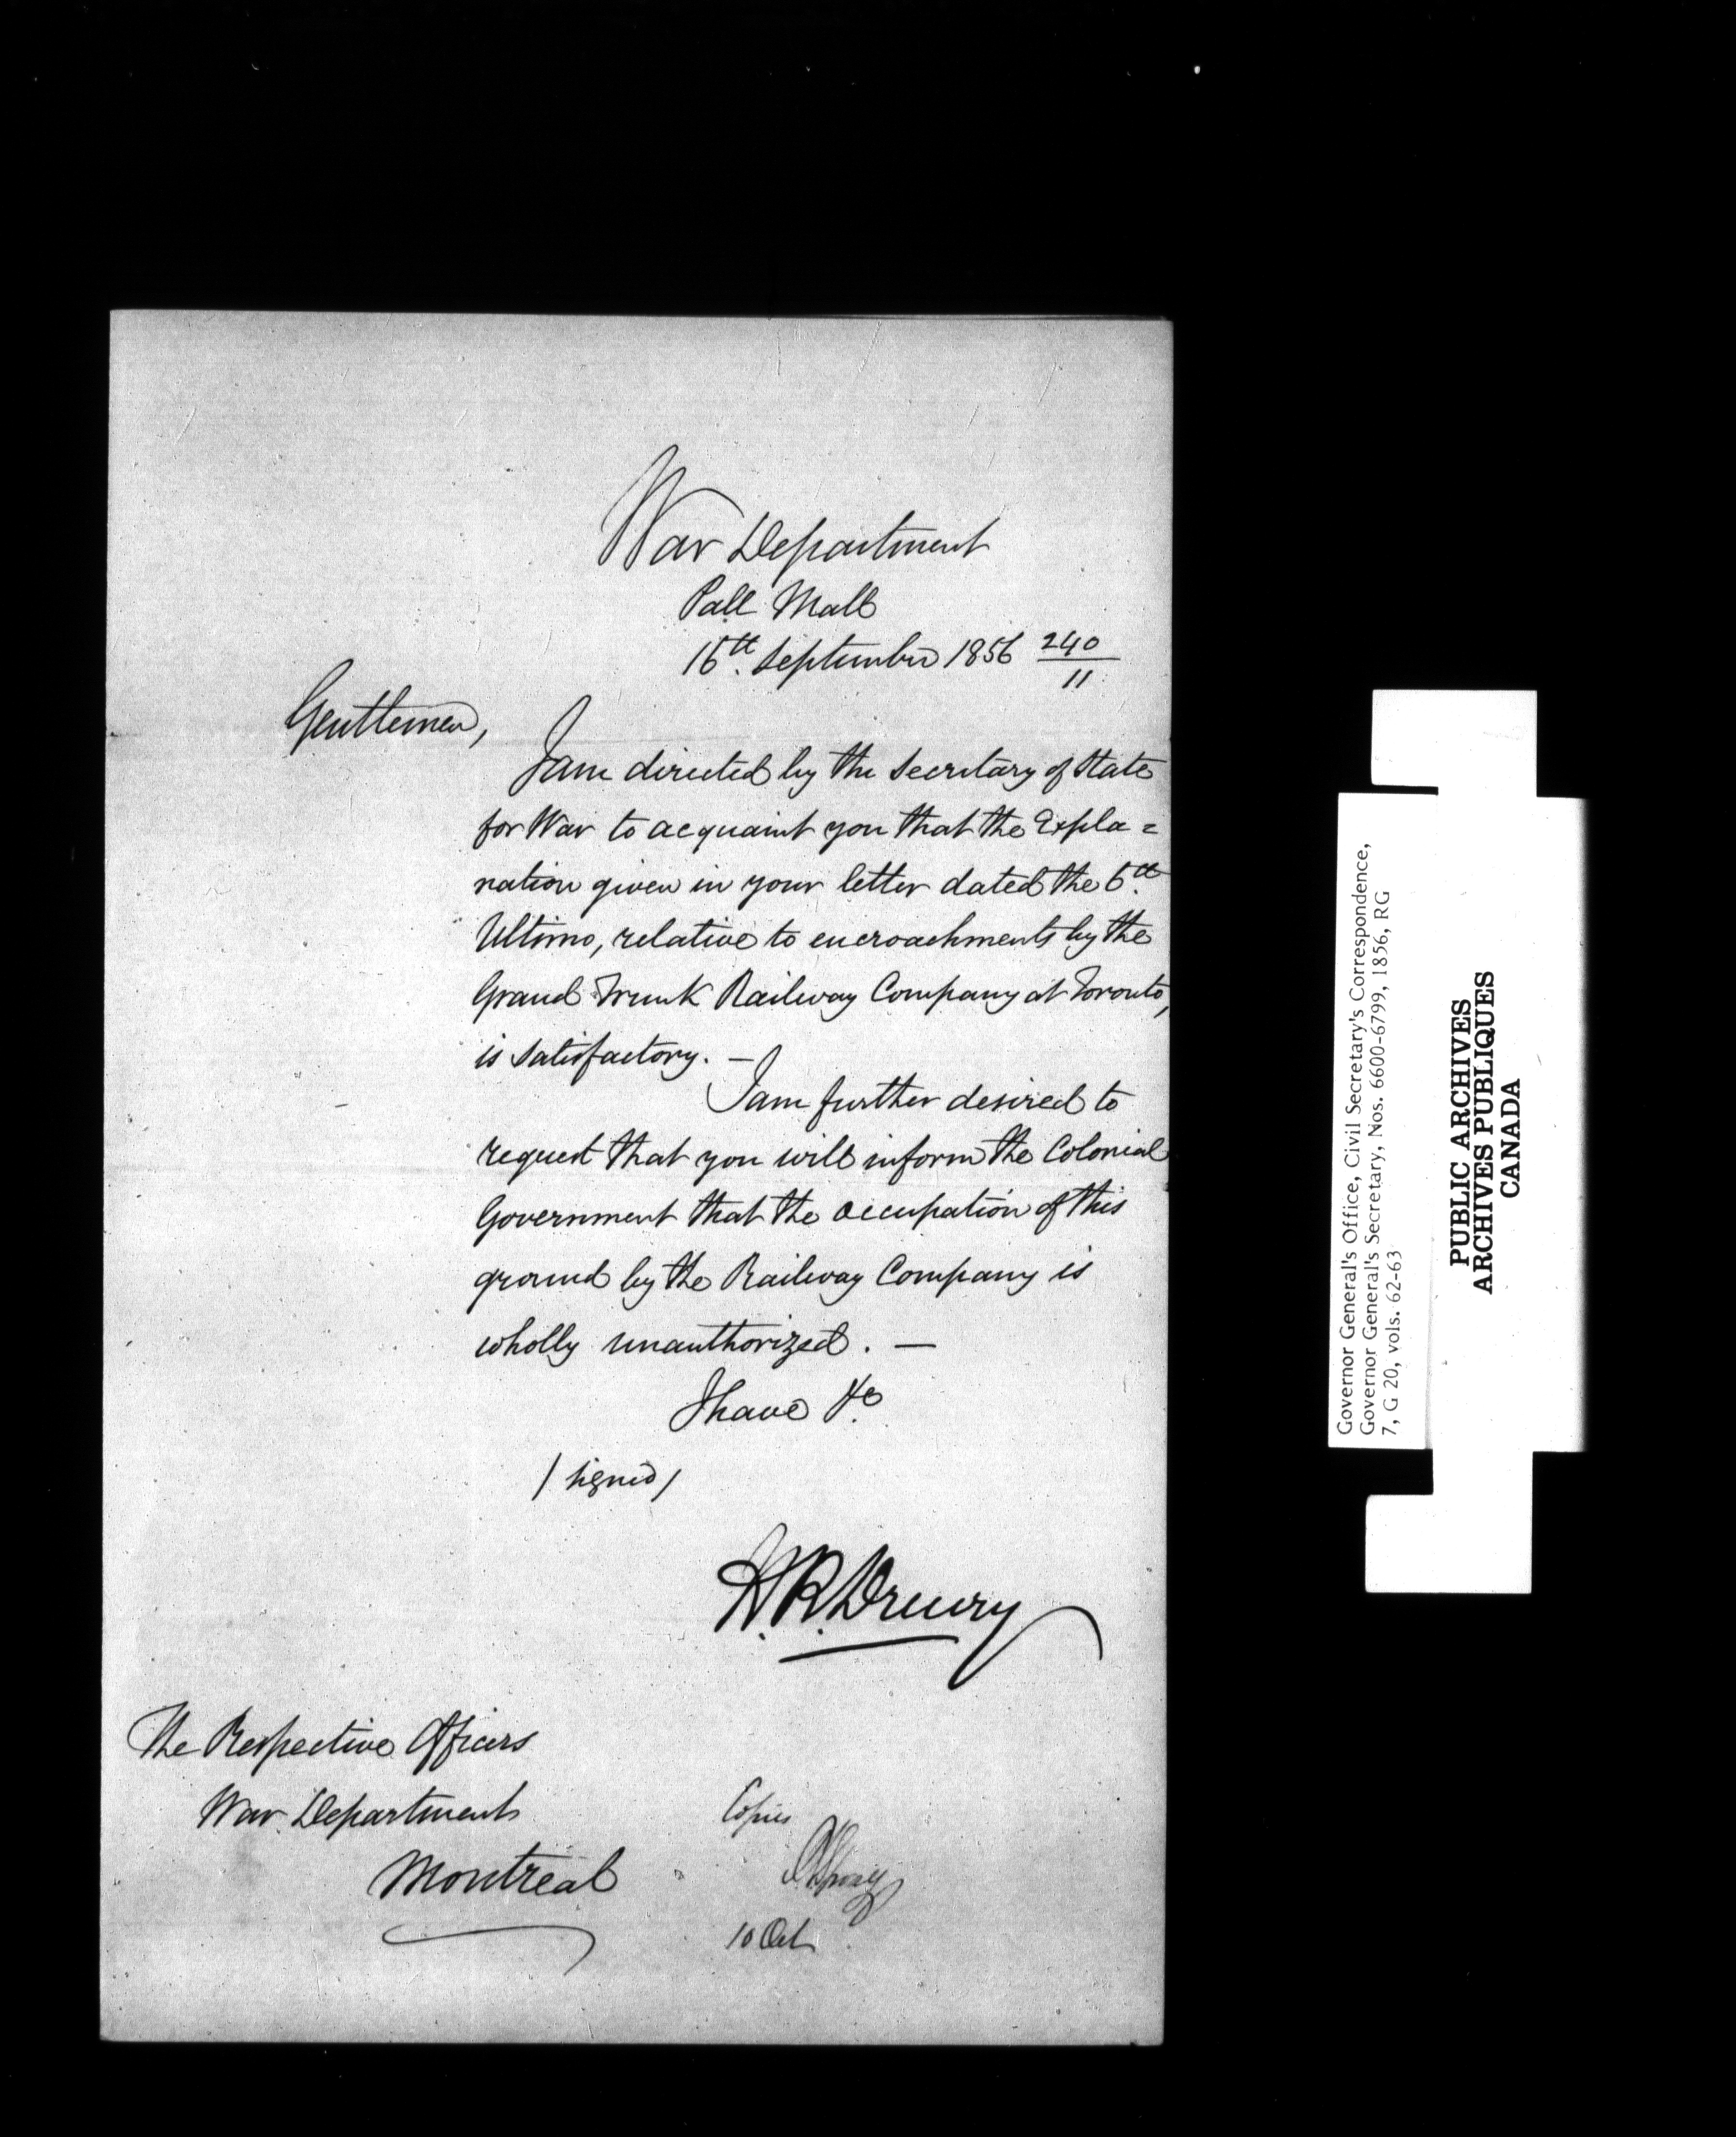 War Department
Pall Mall
16th. September 1856 240/11
Gentlemen,
I am directed by the Secretary of State
for War to acquaint you that the Expla=
nation given in your letter dated the 6th.
Ultimo, relative to encroachments by the
Grand Trunk Railway Company at Toronto,
is satisfactory. —
I am further desired to
request that you will inform the Colonial
Government that the occupation of this
ground by the Railway Company is
wholly unauthorized. —
I have &c
/signed/
H. R. Drewry
The Respective Officers
War Department
Montreal
Copies
10 Oct
Governor General's Office, Civil Secretary's Correspondence,
Governor General's Secretary, Nos. 6600-6799, 1856, RG
7, G 20, vols. 62-63
PUBLIC ARCHIVES
ARCHIVES PUBLIQUES
CANADA